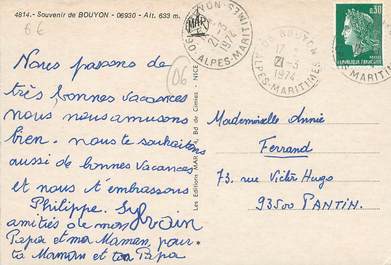 4814.- Souvenir de BOUYON - 06930 - Alt. 633 m.
6€
06
Nous passons de
très bonnes vacances
nous nous amusons
bien. nous te souhaitons
aussi de bonnes vacances
et nous t'embrassons
Philippe. Sylvain
amitiés de mon
Papa et ma Maman, pour
ta Maman et ton Papa
Les Editions MAR, Bd de Cimiez - NICE
MAR
21-3
1974
ALPES-MARITIMES
BOUYON
17
21-3
1974
ALPES-MARITIMES
0,30
REPUBLIQUE FRANCAISE
Mademoiselle Annie
Ferrand
73, rue Victor Hugo
93500 PANTIN.